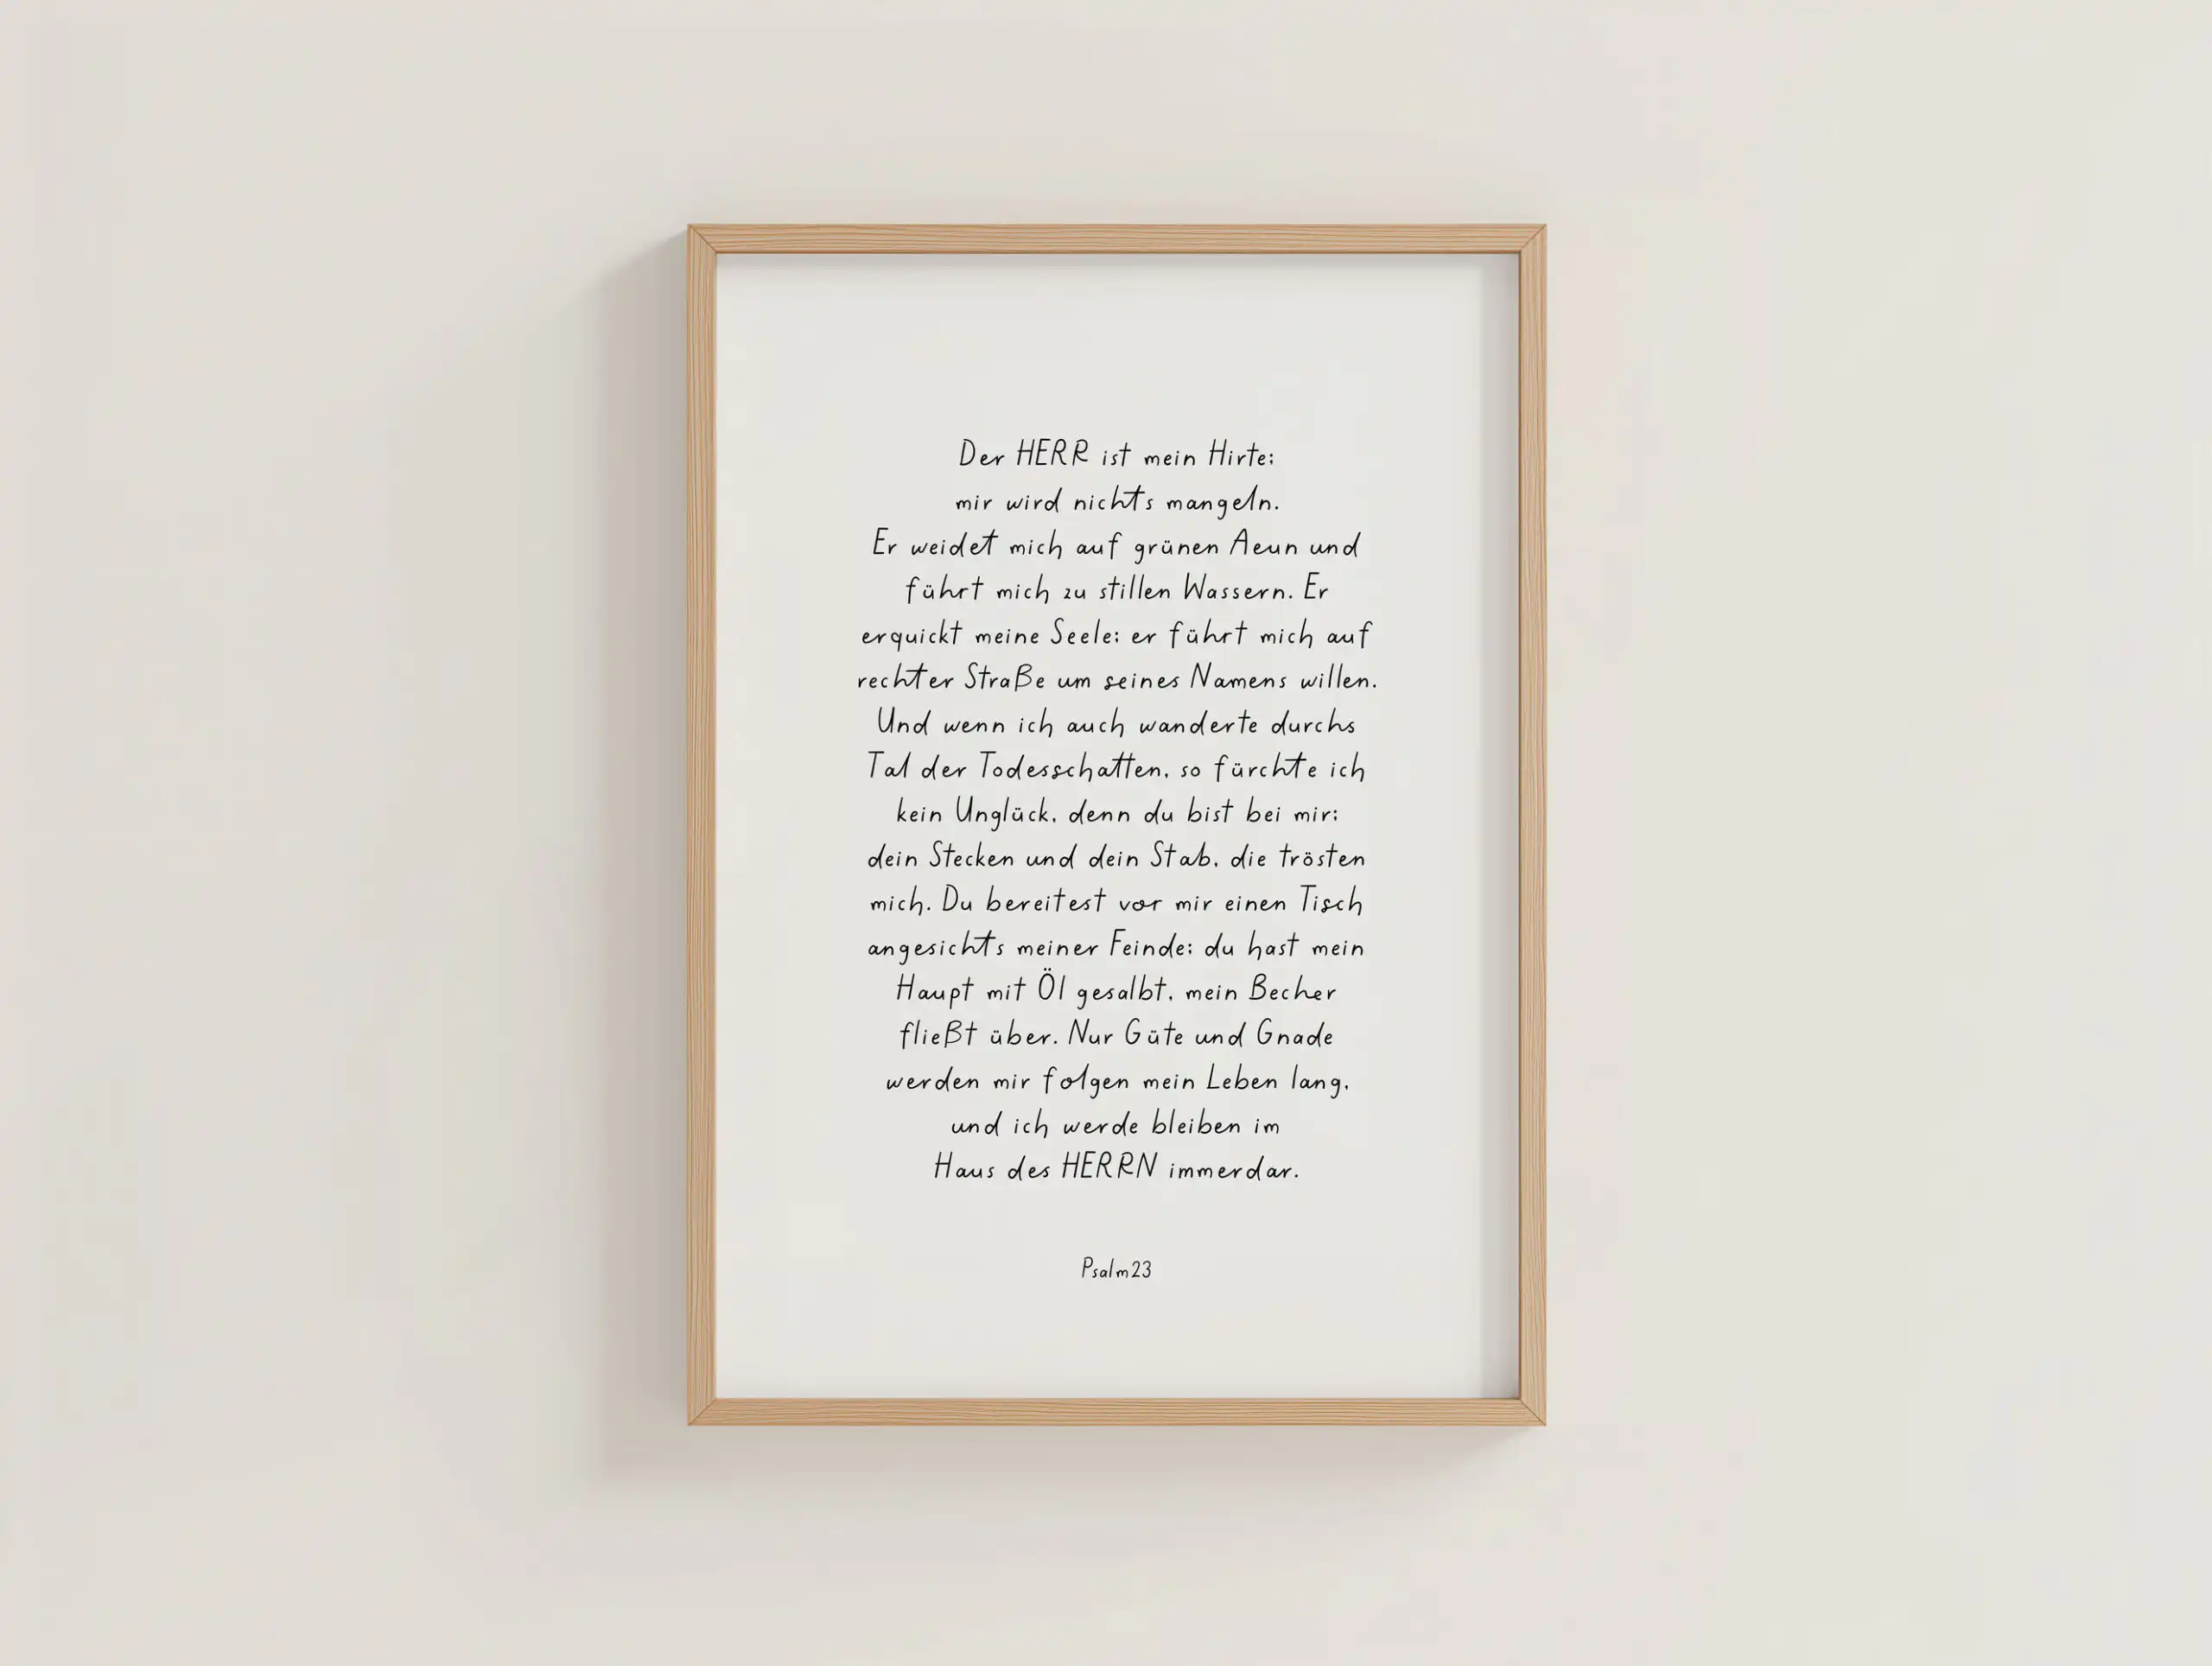 Der HERR ist mein Hirte;
mir wird nichts mangeln.
Er weidet mich auf grünen Aeun und
führt mich zu stillen Wassern. Er
erquickt meine Seele; er führt mich auf
rechter Straße um seines Namens willen.
Und wenn ich auch wanderte durchs
Tal der Todesschatten, so fürchte ich
kein Unglück, denn du bist bei mir;
dein Stecken und dein Stab, die trösten
mich. Du bereitest vor mir einen Tisch
angesichts meiner Feinde; du hast mein
Haupt mit Öl gesalbt, mein Becher
fließt über. Nur Güte und Gnade
werden mir folgen mein Leben lang,
und ich werde bleiben im
Haus des HERRN immerdar.
Psalm23